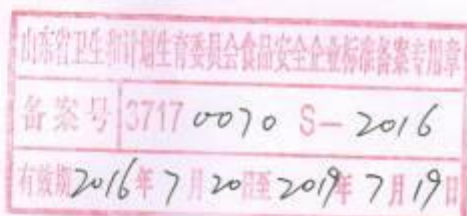 山东省卫生和计划生育委员会食品安全企业标准备案专用章
备案号 3717 0070 S-2016
有效期2016年7月20日至2019年7月19日